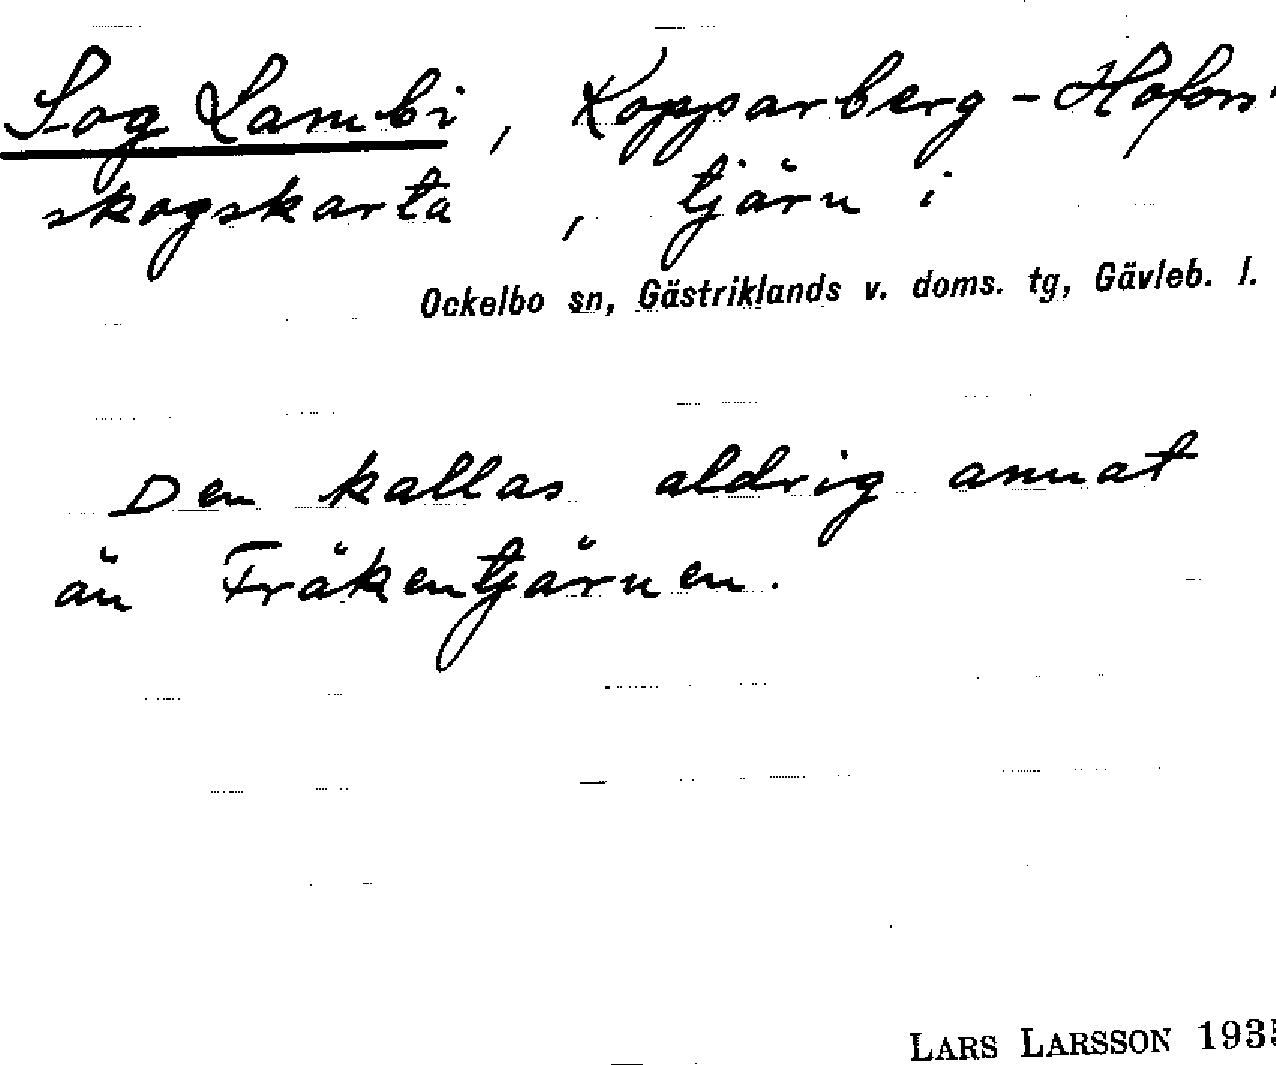 Sog Lambi, Kopparberg-Hofors'
skogskarta, tjärn i
Ockelbo sn, Gästriklands v. doms. tg, Gävleb. l.
Den kallas aldrig annat
än Fräkentjärnen.
LARS LARSSON 1935